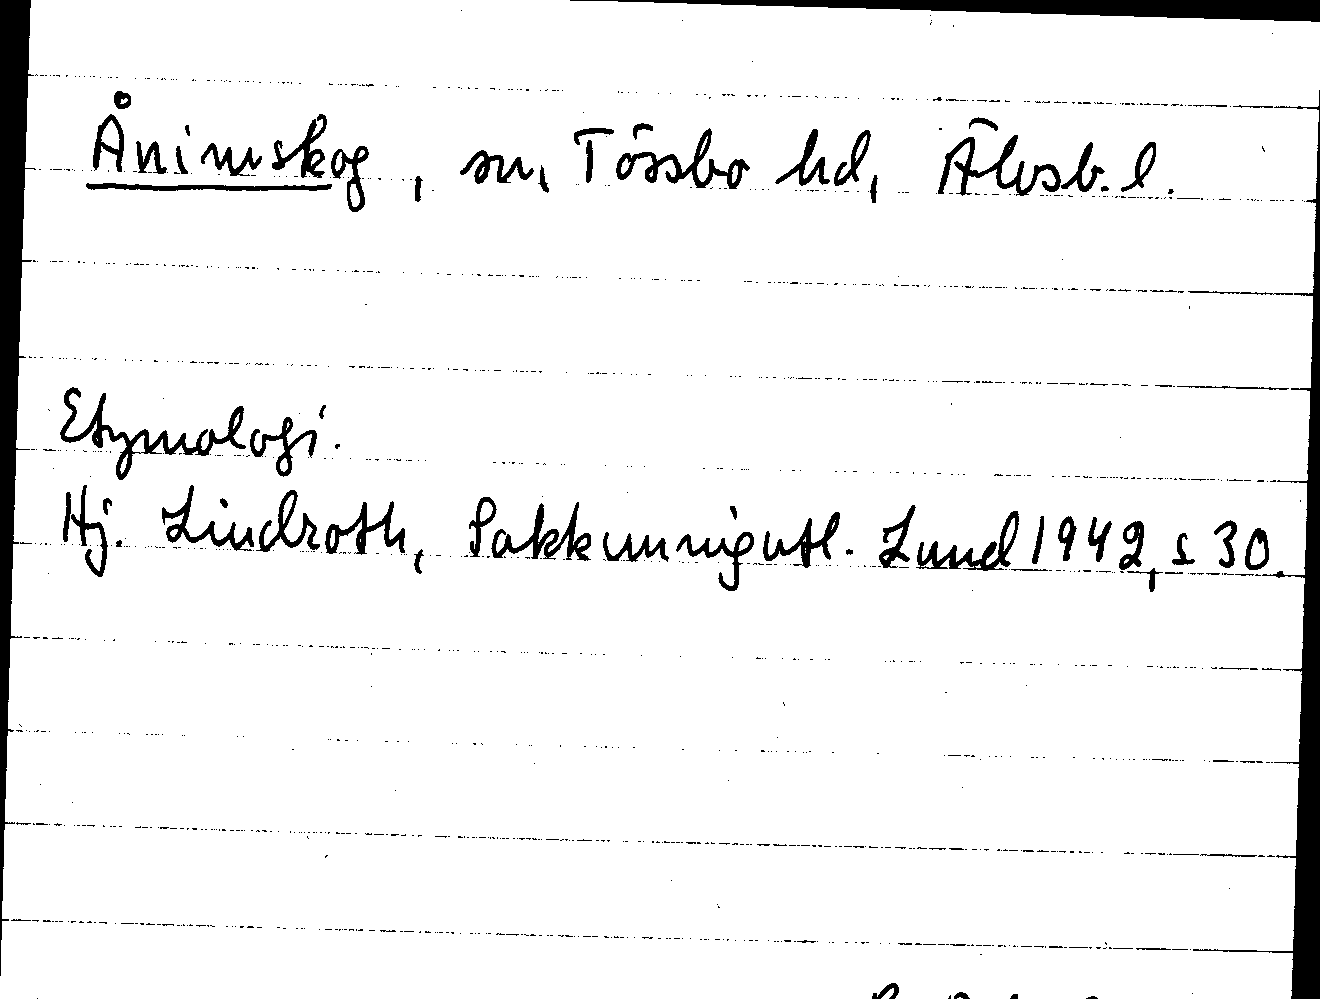 Ånimskog, sn, Tössbo hd, Älvsb. l.
Etymologi.
Hj. Lindroth, Sakkunnigutl. Lund 1942, s 30.